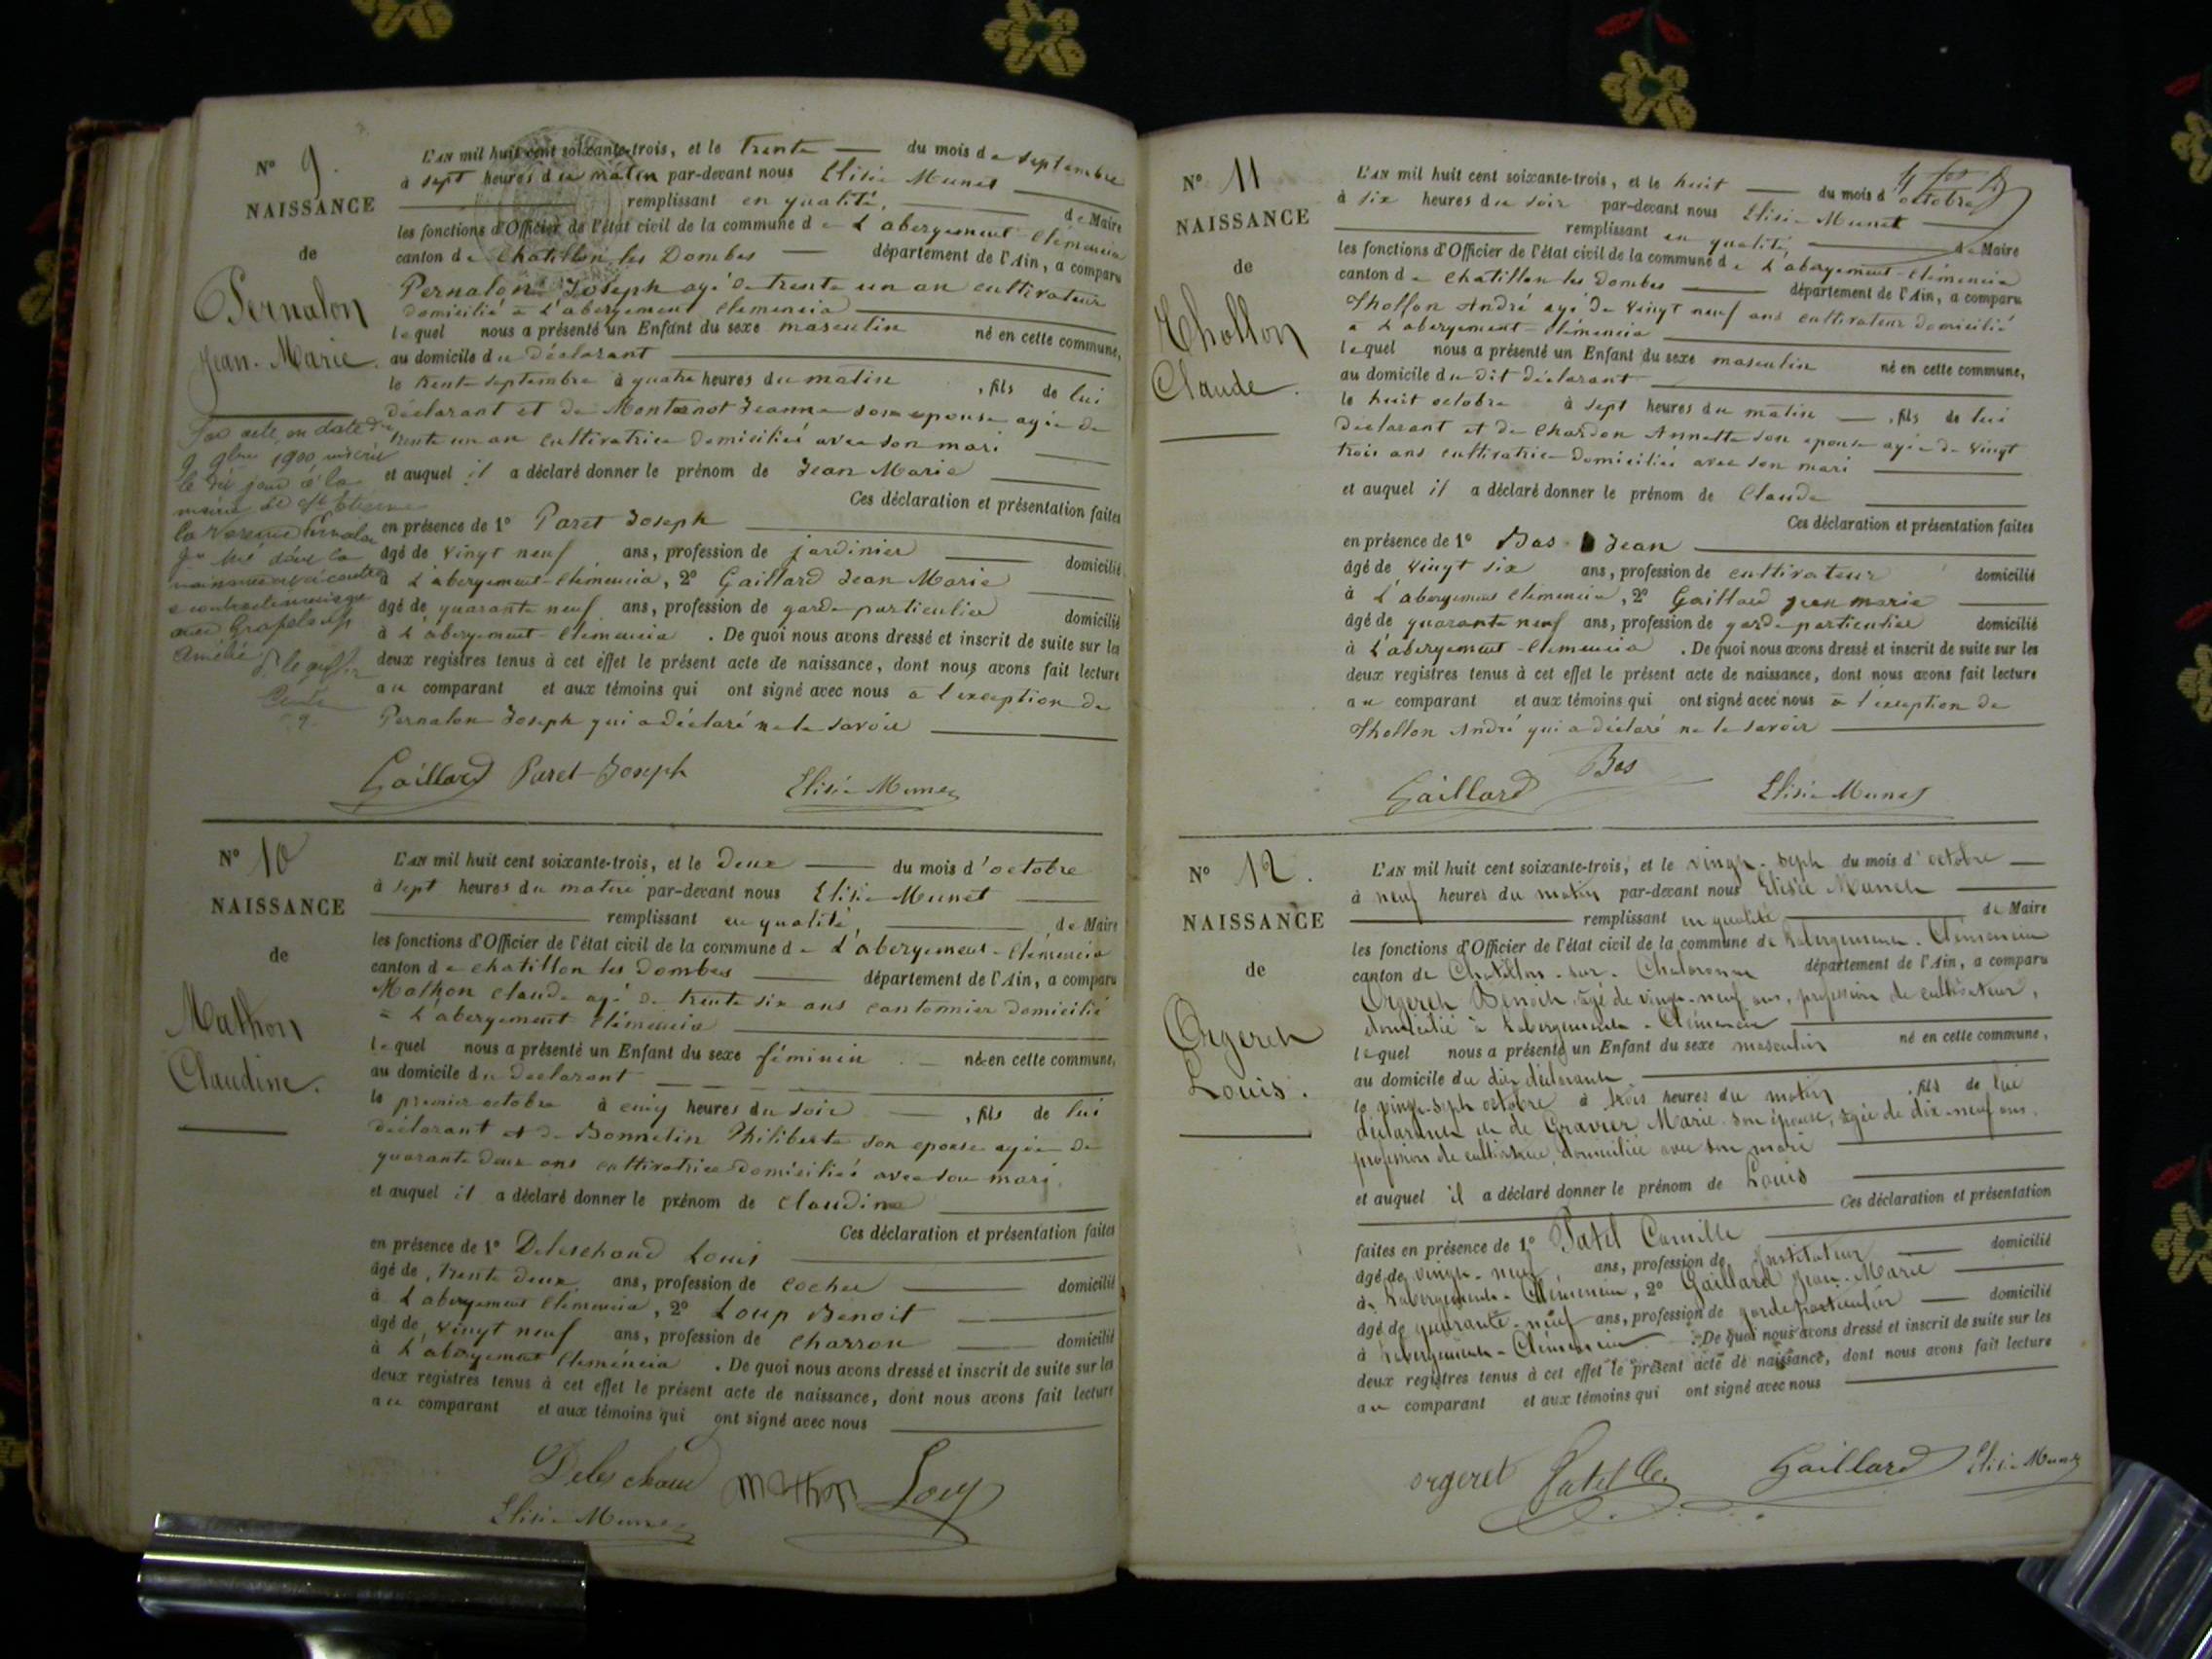 N° 9.
NAISSANCE
de
Pernalon
Jean-Marie.
L'AN mil huit cent soixante-trois, et le trente du mois de septembre
à sept heures du matin par-devant nous Elisée Munet
remplissant en qualité, de Maire
les fonctions d'Officier de l'état civil de la commune de L'abergement-Clémencia
canton de Chatillon les Dombes département de l'Ain, a comparu
Pernalon Joseph agé de trente un an cultivateur
domicilié à L'abergement Clemencia
lequel nous a présenté un Enfant du sexe masculin né en cette commune,
au domicile du déclarant
le trente septembre à quatre heures du matin, fils de lui
déclarant et de Montarnot Jeanne son epouse agée de
trente un an cultivatrice domiciliée avec son mari
et auquel il a déclaré donner le prénom de Jean Marie
Ces déclaration et présentation faites
en présence de 1° Paret Joseph
âgé de vingt neuf ans, profession de jardinier domicilié
à L'abergement-Clémencia, 2° Gaillard Jean Marie
âgé de quarante neuf ans, profession de garde particulier domicilié
à L'abergement-Clémencia. De quoi nous avons dressé et inscrit de suite sur les
deux registres tenus à cet effet le présent acte de naissance, dont nous avons fait lecture
au comparant et aux témoins qui ont signé avec nous a l'exception de
Pernalon Joseph qui a déclaré ne le savoir
Par acte en date du
9 9bre 1900 inscrit
le dit jour à la
mairie de St Etienne
la Varenne Pernalon
Jn Mie dont la
naissance est ci contre
a contracté mariage
avec
Amélie
Gaillard Paret-Joseph Elisée Munet
N° 10
NAISSANCE
de
Mathon
Claudine.
L'AN mil huit cent soixante-trois, et le deux du mois d'octobre
à sept heures du matin par-devant nous Elisée Munet
remplissant en qualité, de Maire
les fonctions d'Officier de l'état civil de la commune de L'abergement-Clémencia
canton de chatillon les Dombes département de l'Ain, a comparu
Mathon Claude agé de trente six ans cantonnier domicilié
à L'abergement Clémencia
lequel nous a présenté un Enfant du sexe féminin né en cette commune,
au domicile du declarant
le premier octobre à cinq heures du soir, fils de lui
déclarant et de Bonnetin Philiberte son epouse agée de
quarante deux ans cultivatrice domiciliée avec son mari
et auquel il a déclaré donner le prénom de Claudine
Ces déclaration et présentation faites
en présence de 1° Deleschaud Louis
âgé de trente deux ans, profession de cocher domicilié
à L'abergement Clémencia, 2° Loup Benoit
âgé de vingt neuf ans, profession de charron domicilié
à L'abergement Clémencia. De quoi nous avons dressé et inscrit de suite sur les
deux registres tenus à cet effet le présent acte de naissance, dont nous avons fait lecture
au comparant et aux témoins qui ont signé avec nous
Deleschaud Mathon Loup
Elisée Munet
N° 11
NAISSANCE
de
Thollon
Claude.
L'AN mil huit cent soixante-trois, et le huit du mois d'octobre
à six heures du soir par-devant nous Elisée Munet
remplissant en qualité, de Maire
les fonctions d'Officier de l'état civil de la commune de L'abergement-Clémencia
canton de Chatillon les Dombes département de l'Ain, a comparu
Thollon André agé de vingt neuf ans cultivateur domicilié
à L'abergement-Clémencia
lequel nous a présenté un Enfant du sexe masculin né en cette commune,
au domicile du dit déclarant
le huit octobre à sept heures du matin, fils de lui
déclarant et de Chardon Annette son epouse agée de vingt
trois ans cultivatrice domiciliée avec son mari
et auquel il a déclaré donner le prénom de Claude
Ces déclaration et présentation faites
en présence de 1° Bas Jean
âgé de vingt six ans, profession de cultivateur domicilié
à L'abergement Clémencia, 2° Gaillard jean marie
âgé de quarante neuf ans, profession de garde particulier domicilié
à L'abergement-Clémencia. De quoi nous avons dressé et inscrit de suite sur les
deux registres tenus à cet effet le présent acte de naissance, dont nous avons fait lecture
au comparant et aux témoins qui ont signé avec nous à l'exception de
Thollon André qui a déclaré ne le savoir
Gaillard Bas Elisée Munet
N° 12.
NAISSANCE
de
Orgeret
Louis.
L'AN mil huit cent soixante-trois, et le vingt-sept du mois d'octobre
à neuf heures du matin par-devant nous Elisée Munet
remplissant en qualité de Maire
les fonctions d'Officier de l'état civil de la commune de Labergement-Clémencia
canton de Chatillon-sur-Chalaronne département de l'Ain, a comparu
Orgeret Benoit âgé de vingt-neuf ans, profession de cultivateur,
domicilié à Labergement-Clémencia
lequel nous a présenté un Enfant du sexe masculin né en cette commune,
au domicile du dit déclarant
le vingt-sept octobre à trois heures du matin, fils de lui
déclarant et de Gravier Marie son épouse, âgée de dix-neuf ans,
profession de cultivatrice, domiciliée avec son mari
et auquel il a déclaré donner le prénom de Louis
Ces déclaration et présentation
faites en présence de 1° Patel Camille
âgé de vingt-neuf ans, profession de Instituteur domicilié
à Labergement-Clémencia, 2° Gaillard Jean-Marie
âgé de quarante-neuf ans, profession de garde particulier domicilié
à Labergement-Clémencia. De quoi nous avons dressé et inscrit de suite sur les
deux registres tenus à cet effet le présent acte de naissance, dont nous avons fait lecture
au comparant et aux témoins qui ont signé avec nous
orgeret Patel Ce. Gaillard Elisée Munet